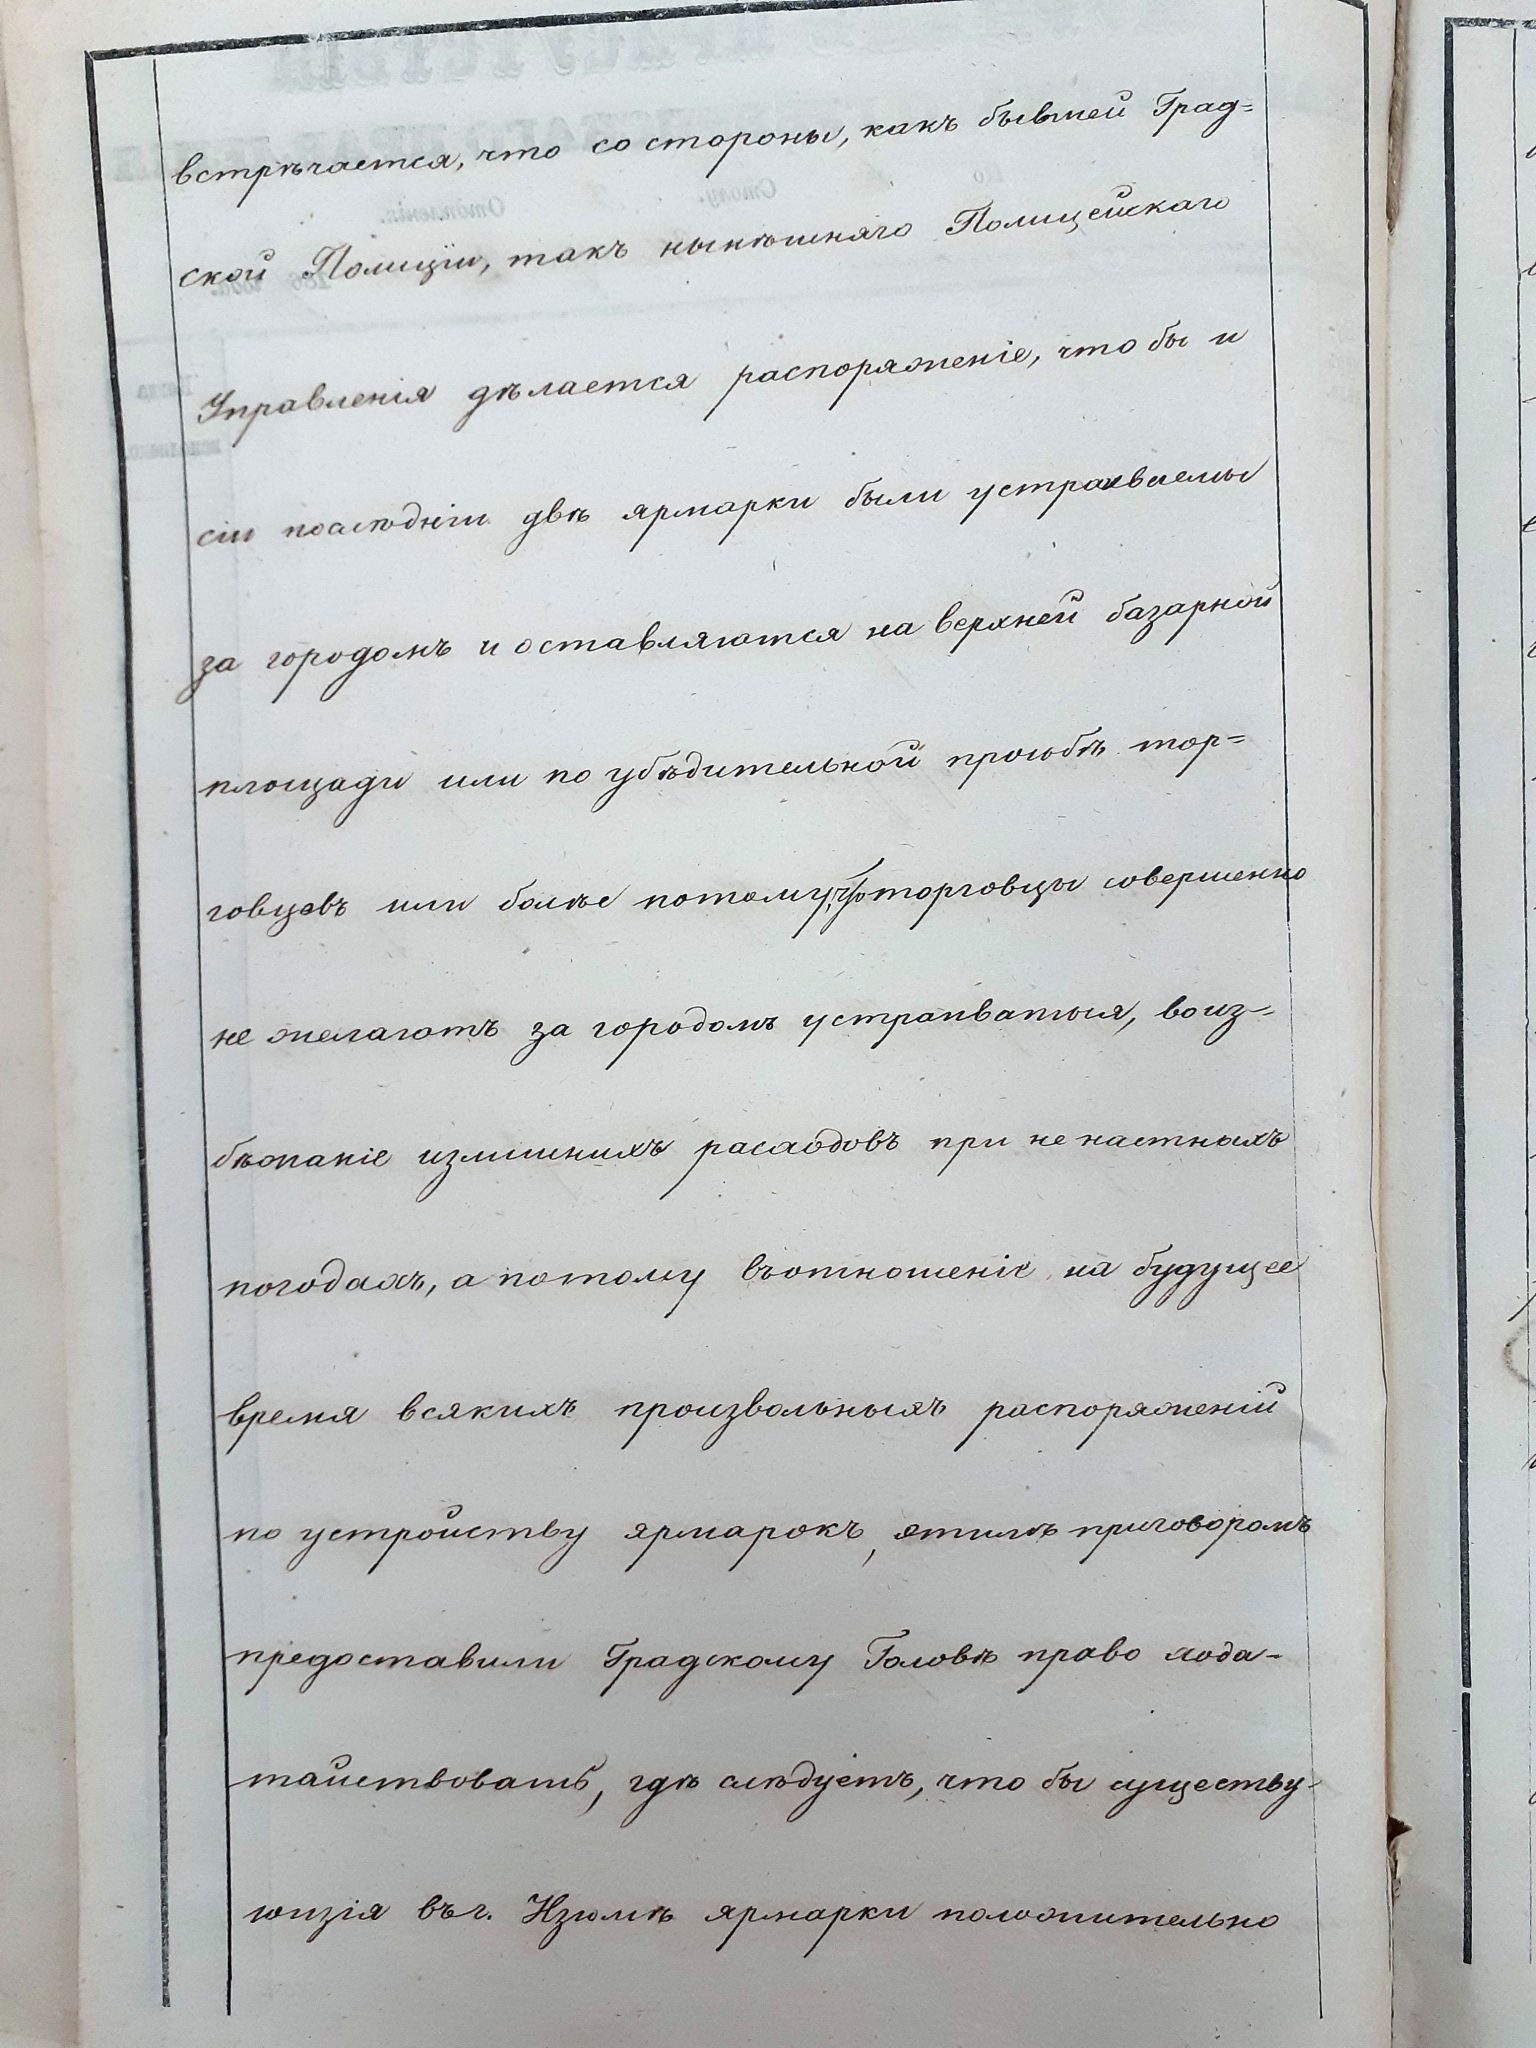 встрѣчается, что со стороны, какъ бывшей Град=
ской Полиціи, такъ нынѣшняго Полицейскаго
Управленія дѣлается распоряженіе, что бы и
сіи послѣднія двѣ ярмарки были устраиваемы
за городомъ и оставляются на верхней базарной
площади или по убѣдительной просьбѣ тор=
говцевъ или болѣе потому, что торговцы совершенно
не желаютъ за городомъ устраиваться, во из-
бѣжаніе излишнихъ расходовъ при не настныхъ
погодахъ, а потому въ отношеніе на будущее
время всякихъ произвольныхъ распоряженій
по устройству ярмарокъ, этимъ приговоромъ
предоставили Градскому Головѣ право хода-
тайствовать, гдѣ слѣдуетъ, что бы существу-
ющія въ г. Изюмѣ ярмарки положительно